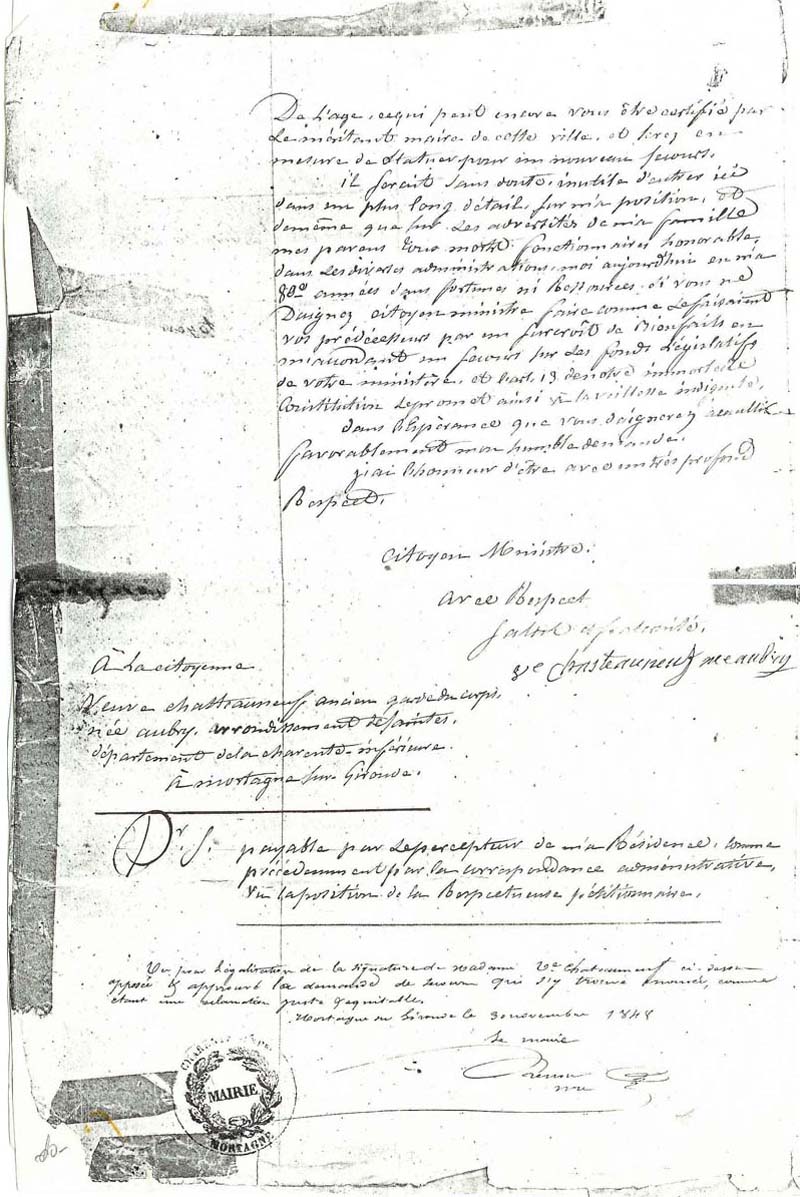 De L'age, cequi peut encore vous être certifié par
Le méritant maire de cette ville, et serez en
mesure de Statuer pour un nouveau secours.
il serait Sans doute, inutile d'entrer ici
dans un plus long détail, sur ma position, et
demême que sur Les adversités de ma famille
mes parens tous morts fonctionnaires honorable
dans Les diverses administrations, moi aujourd'hui en ma
80e années Sans fortunes ni Ressources, Si vous ne
Daignez citoyen ministre faire comme Le faisaient
vos prédécesseurs par un surcroît de Bienfaits en
m'accordant un secours sur Les fonds Législatifs
de votre ministère, et L'art. 13 de notre immortelle
Constitution Le promet ainsi à la vieillesse indigente,
dans L'Espérance que vous daignerez accueillir
favorablement mon humble demande.
j'ai L'honneur d'être avec un très profond
Respect,
Citoyen Ministre.
avec Respect
Salut et fraternité,
Ve Chasteauneuf née aubry
À La citoyenne
Veuve chasteauneuf, ancien garde du corps,
née aubry, arrondissement de Saintes,
département de la charente-inférieure.
À mortagne sur Gironde.
Pr S. payable par Le percepteur de ma Résidence, comme
précédemment par la correspondance administrative,
vu la position de la Respectueuse pétitionnaire.
Vu pour Légalisation de la signature de Madame Ve Chateauneuf ci-dessus
apposée et approuvé la demande de secours qui s'y trouve énoncée, comme
étant une réclamation juste & équitable.
Mortagne sur Gironde le 3 novembre 1848
Le maire
MAIRIE
MORTAGNE